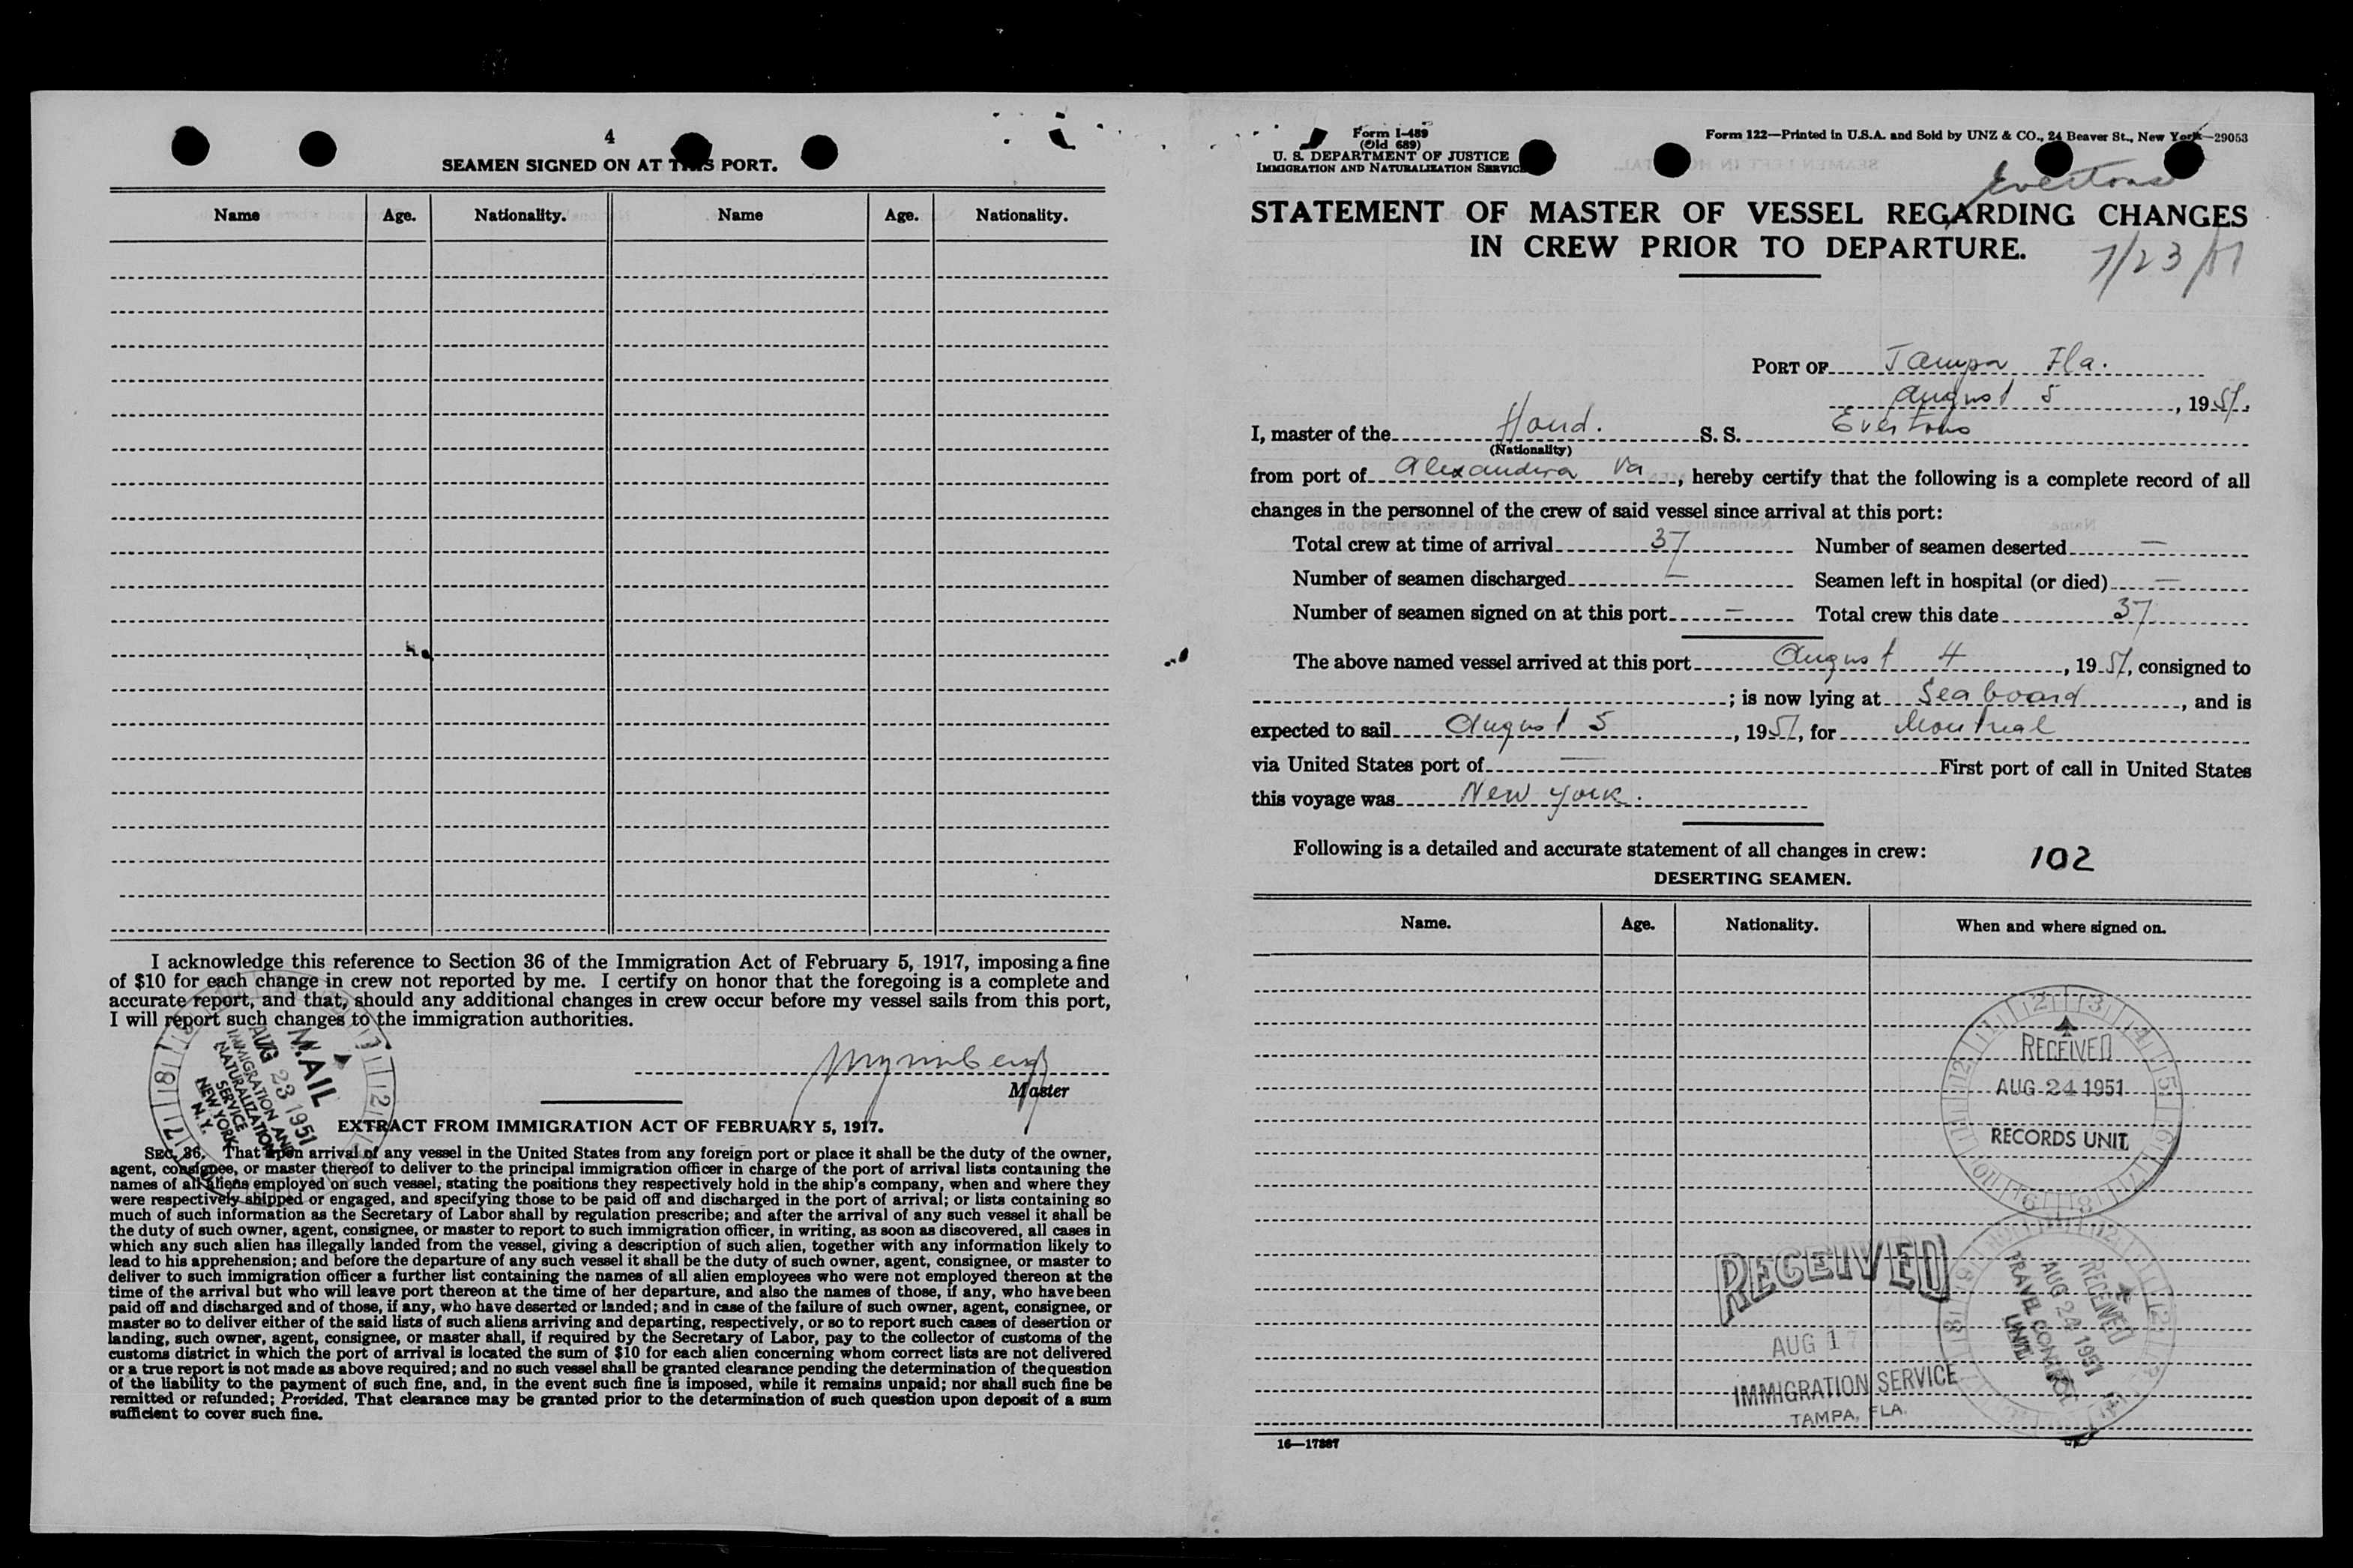 4
SEAMEN SIGNED ON AT THIS PORT.
Name Age. Nationality. Name Age. Nationality.
I acknowledge this reference to Section 36 of the Immigration Act of February 5, 1917, imposing a fine
of $10 for each change in crew not reported by me. I certify on honor that the foregoing is a complete and
accurate report, and that, should any additional changes in crew occur before my vessel sails from this port,
I will report such changes to the immigration authorities.
Master
MAIL
AUG 23 1951
IMMIGRATION AND
NATURALIZATION
SERVICE
NEW YORK
N.Y.
EXTRACT FROM IMMIGRATION ACT OF FEBRUARY 5, 1917.
SEC. 36. That upon arrival of any vessel in the United States from any foreign port or place it shall be the duty of the owner,
agent, consignee, or master thereof to deliver to the principal immigration officer in charge of the port of arrival lists containing the
names of all aliens employed on such vessel, stating the positions they respectively hold in the ship's company, when and where they
were respectively shipped or engaged, and specifying those to be paid off and discharged in the port of arrival; or lists containing so
much of such information as the Secretary of Labor shall by regulation prescribe; and after the arrival of any such vessel it shall be
the duty of such owner, agent, consignee, or master to report to such immigration officer, in writing, as soon as discovered, all cases in
which any such alien has illegally landed from the vessel, giving a description of such alien, together with any information likely to
lead to his apprehension; and before the departure of any such vessel it shall be the duty of such owner, agent, consignee, or master to
deliver to such immigration officer a further list containing the names of all alien employees who were not employed thereon at the
time of the arrival but who will leave port thereon at the time of her departure, and also the names of those, if any, who have been
paid off and discharged and of those, if any, who have deserted or landed; and in case of the failure of such owner, agent, consignee, or
master so to deliver either of the said lists of such aliens arriving and departing, respectively, or so to report such cases of desertion or
landing, such owner, agent, consignee, or master shall, if required by the Secretary of Labor, pay to the collector of customs of the
customs district in which the port of arrival is located the sum of $10 for each alien concerning whom correct lists are not delivered
or a true report is not made as above required; and no such vessel shall be granted clearance pending the determination of the question
of the liability to the payment of such fine, and, in the event such fine is imposed, while it remains unpaid; nor shall such fine be
remitted or refunded; Provided, That clearance may be granted prior to the determination of such question upon deposit of a sum
sufficient to cover such fine.
Form I-489
(Old 689)
U. S. DEPARTMENT OF JUSTICE
IMMIGRATION AND NATURALIZATION SERVICE
Form 122—Printed in U.S.A. and Sold by UNZ & CO., 24 Beaver St., New York—29053
Evertons
STATEMENT OF MASTER OF VESSEL REGARDING CHANGES
IN CREW PRIOR TO DEPARTURE.
7/23/51
PORT OF Tampa Fla.
August 5, 1951.
I, master of the Hond. S. S. Evertons
(Nationality)
from port of Alexandira Va, hereby certify that the following is a complete record of all
changes in the personnel of the crew of said vessel since arrival at this port:
Total crew at time of arrival 37 Number of seamen deserted —
Number of seamen discharged — Seamen left in hospital (or died) —
Number of seamen signed on at this port — Total crew this date 37
The above named vessel arrived at this port August 4, 1951, consigned to
; is now lying at Seaboard, and is
expected to sail August 5, 1951, for Montreal
via United States port of — First port of call in United States
this voyage was New York.
Following is a detailed and accurate statement of all changes in crew:
102
DESERTING SEAMEN.
Name. Age. Nationality. When and where signed on.
RECEIVED
AUG 24 1951
RECORDS UNIT
RECEIVED
AUG 17
IMMIGRATION SERVICE
TAMPA, FLA.
RECEIVED
AUG 24 1951
TRAVEL CONTROL
UNIT
16—17887